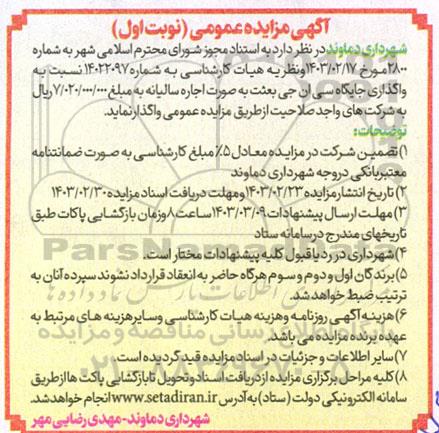 آگهی مزایده عمومی (نوبت اول)
شهرداری دماوند در نظر دارد به استناد مجوز شورای محترم اسلامی شهر به شماره
۲۸۰۰ مورخ ۱۴۰۳/۰۲/۱۷ ونظریه هیات کارشناسی به شماره ۱۴۰۲۲۰۹۷ نسبت به
واگذاری جایگاه سی ان جی بعثت به صورت اجاره سالیانه به مبلغ ۷/۰۲۰/۰۰۰/۰۰۰ ریال
به شرکت های واجد صلاحیت از طریق مزایده عمومی واگذار نماید.
توضیحات:
۱) تضمین شرکت در مزایده معادل ۵٪ مبلغ کارشناسی به صورت ضمانتنامه
معتبر بانکی در وجه شهرداری دماوند
۲) تاریخ انتشار مزایده ۱۴۰۳/۰۲/۲۳ ومهلت دریافت اسناد مزایده ۱۴۰۳/۰۲/۳۰
۳) مهلت ارسال پیشنهادات ۱۴۰۳/۰۳/۰۹ ساعت ۸ وزمان بازگشایی پاکات طبق
تاریخهای مندرج در سامانه ستاد
۴) شهرداری در رد یا قبول کلیه پیشنهادات مختار است.
۵) برندگان اول و دوم و سوم هرگاه حاضر به انعقاد قرارداد نشوند سپرده آنان به
ترتیب ضبط خواهد شد.
۶) هزینه آگهی روزنامه وهزینه هیات کارشناسی وسایر هزینه های مرتبط به
عهده برنده مزایده می باشد.
۷) سایر اطلاعات و جزئیات در اسناد مزایده قید گردیده است.
۸) کلیه مراحل برگزاری مزایده از دریافت اسناد وتحویل تا بازگشایی پاکت ها از طریق
سامانه الکترونیکی دولت (ستاد) به آدرس www.setadiran.ir انجام خواهد شد.
شهرداری دماوند-مهدی رضایی مهر
ParsNamadData